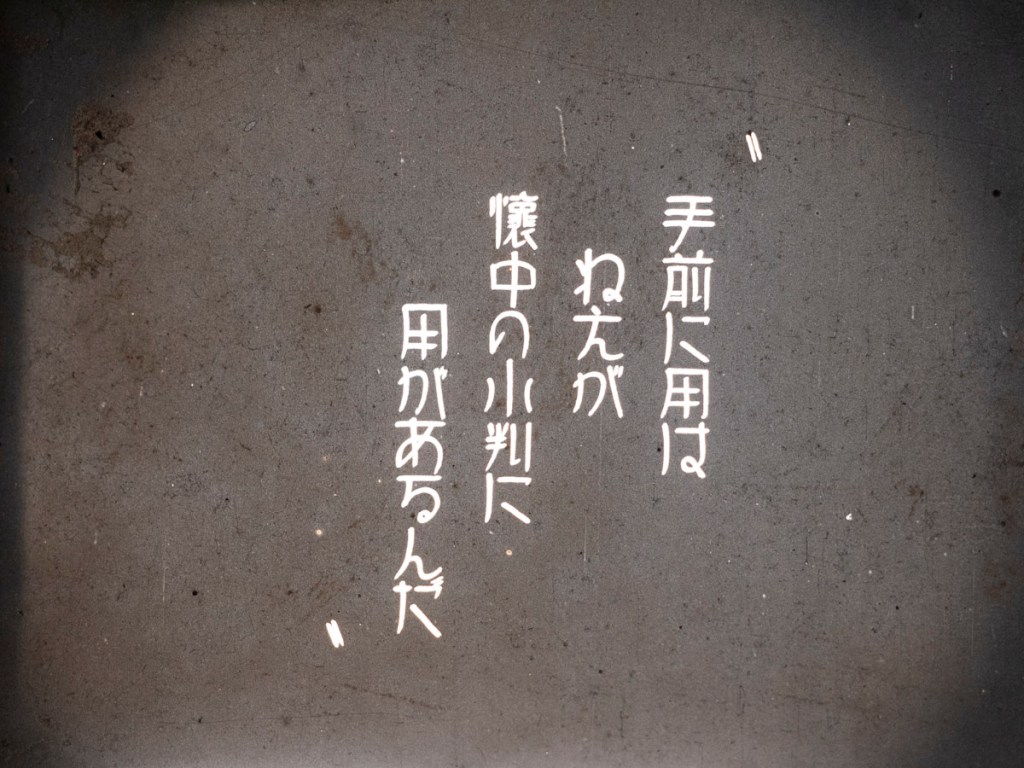 〝手前に用は
ねえが
懐中の小判に
用があるんだ〟